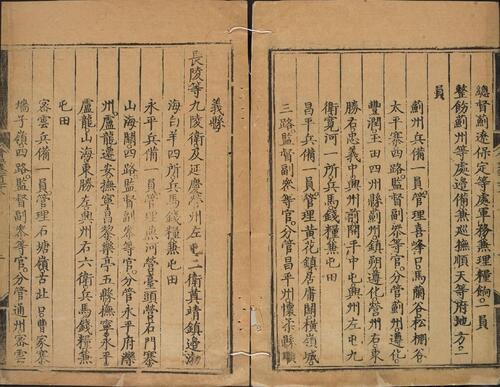 總督薊遼保定等處軍務兼理糧餉一員
整飭薊州等處邊備兼巡撫順天等府地方一
員
薊州兵備一員管理喜峰口馬蘭谷松棚谷
太平寨四路監督副叅等官分管薊州遵化
豐潤玉田四州縣薊州鎮朔遵化營州右東
勝右忠義中興州前開平中屯興州左屯九
衛寬河一所兵馬錢糧兼屯田
昌平兵備一員管理黃花鎮居庸關橫嶺城
三路監督副叅等官分管昌平州懷柔縣順
義縣
長陵等九陵衛及延慶營州左屯二衛真靖鎮邊渤
海白羊四所兵馬錢糧兼屯田
永平兵備一員管理燕河營臺頭營石門寨
山海關四路監督副叅等官分管永平府灤
州盧龍遷安撫寧昌黎樂亭五縣撫寧永平
盧龍山海東勝左興州右六衛兵馬錢糧兼
屯田
密雲兵備一員管理石塘嶺古北口曹家寨
墻子嶺四路監督副叅等官分管通州密雲